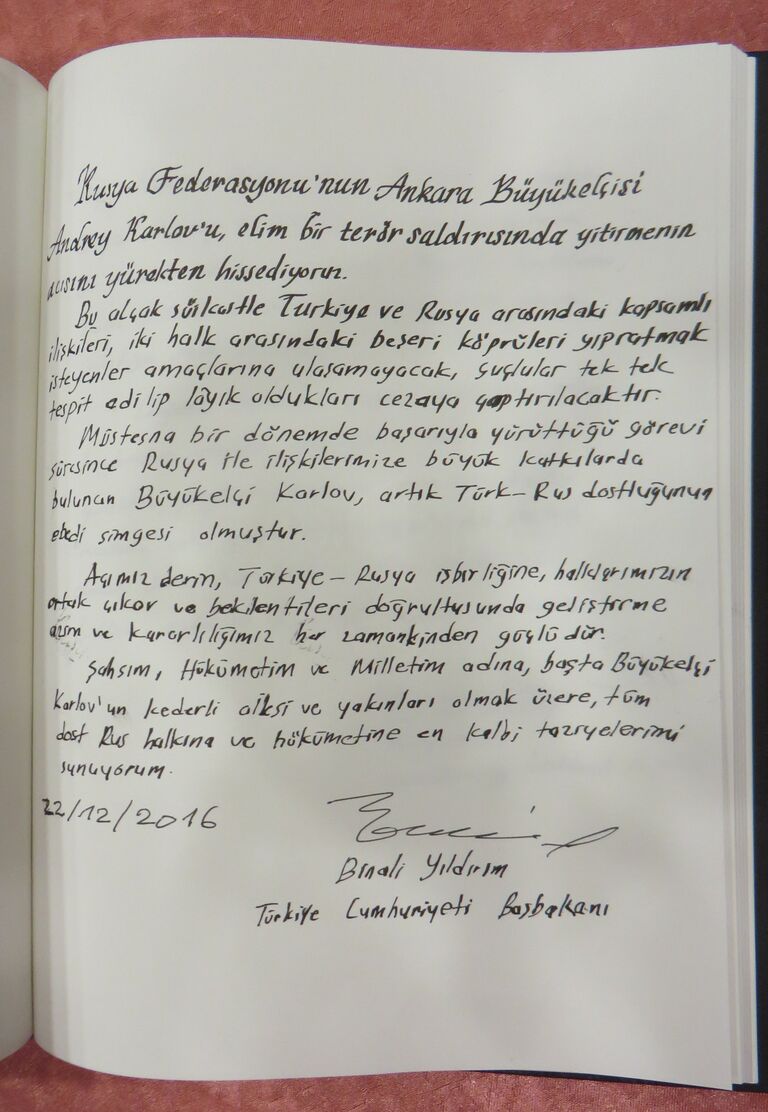 Rusya Federasyonu'nun Ankara Büyükelçisi
Andrey Karlov'u, elim bir terör saldırısında yitirmenin
acısını yürekten hissediyoruz.
Bu alçak süikastle Türkiye ve Rusya arasındaki kapsamlı
ilişkileri, iki halk arasındaki beşeri köprüleri yıpratmak
isteyenler amaçlarına ulaşamayacak, suçlular tek tek
tespit edilip layık oldukları cezaya çaptırılacaktır.
Müstesna bir dönemde başarıyla yürüttüğü görevi
süresince Rusya ile ilişkilerimize büyük katkılarda
bulunan Büyükelçi Karlov, artık Türk-Rus dostluğunun
ebedi simgesi olmuştur.
Acımız derin, Türkiye-Rusya işbirliğine, halklarımızın
ortak çıkar ve beklentileri doğrultusunda geliştirme
azim ve kararlılığımız her zamankinden güçlüdür.
Şahsım, Hükümetim ve Milletim adına, başta Büyükelçi
Karlov'un kederli ailesi ve yakınları olmak üzere, tüm
dost Rus halkına ve hükümetine en kalbi taziyelerimi
sunuyorum.
22/12/2016
Binali Yıldırım
Türkiye Cumhuriyeti Başbakanı